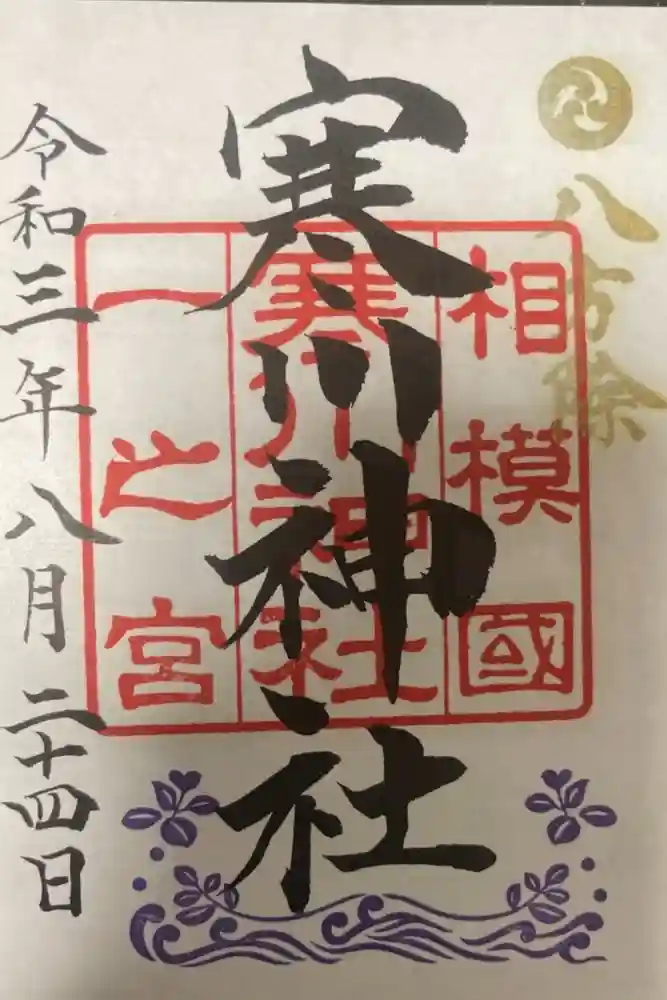 八方除
寒川神社
相模國
寒川神社
一之宮
令和三年八月二十四日